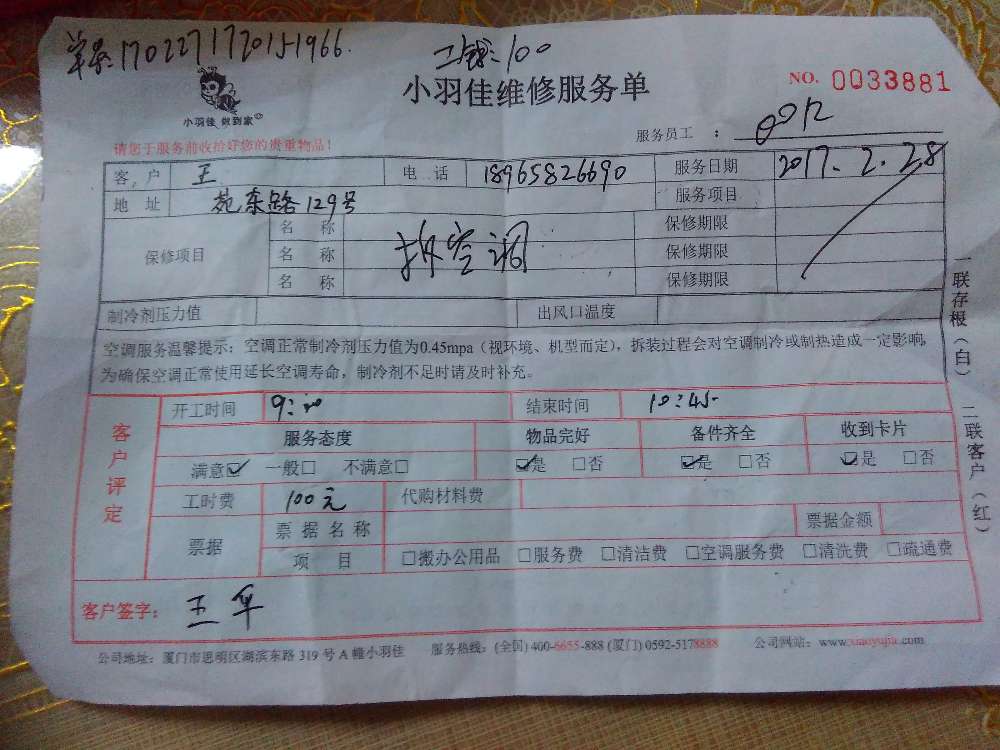 单号:1702271720151966.
工钱:100
小羽佳 做到家
小羽佳维修服务单
NO. 0033881
请您于服务前收拾好您的贵重物品!
服务员工 :
客 户 王 电 话 18965826690 服务日期 2017.2.28
地 址 苑东路129号 服务项目
保修项目 名 称 拆空调 保修期限
名 称 保修期限
名 称 保修期限
制冷剂压力值 出风口温度
空调服务温馨提示:空调正常制冷剂压力值为0.45mpa(视环境、机型而定),拆装过程会对空调制冷或制热造成一定影响,
为确保空调正常使用延长空调寿命,制冷剂不足时请及时补充。
客户评定
开工时间 9: 结束时间 10:45
服务态度 物品完好 备件齐全 收到卡片
满意☑ 一般□ 不满意□ ☑是 □否 ☑是 □否 ☑是 □否
工时费 100元 代购材料费
票据 票 据 名 称 票据金额
项 目 □搬办公用品 □服务费 □清洁费 □空调服务费 □清洗费 □疏通费
客户签字: 王军
公司地址:厦门市思明区湖滨东路 319 号 A 幢小羽佳 服务热线:(全国) 400-6655-888 (厦门) 0592-5178888 公司网站:www.xiaoyujia.com
一联存根(白)
二联客户(红)